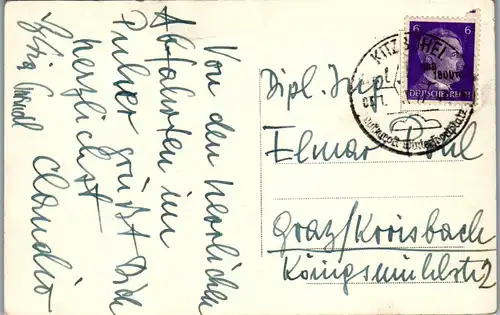 Von den herrlichen
Abfahrten im
Pulver grüßt Dich
herzlichst
Claudio
Jörg
6 6
DEUTSCHES REICH
KITZBÜHEL
1800m
Dipl. Ing.
Elmar
Graz/Kroisbach
Königsmühlstr 2